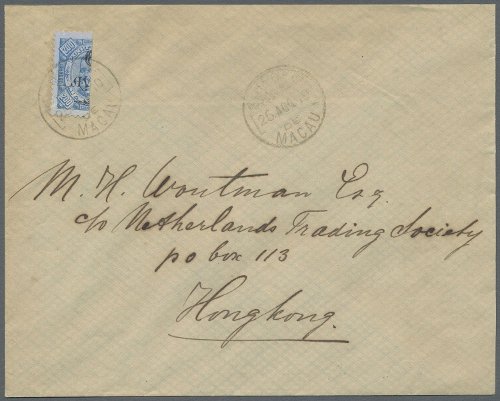 26 AGO
MACAU
MACAU
M. H. Woutman Esq.
c/o Netherlands Trading Society
po box 113
Hongkong.